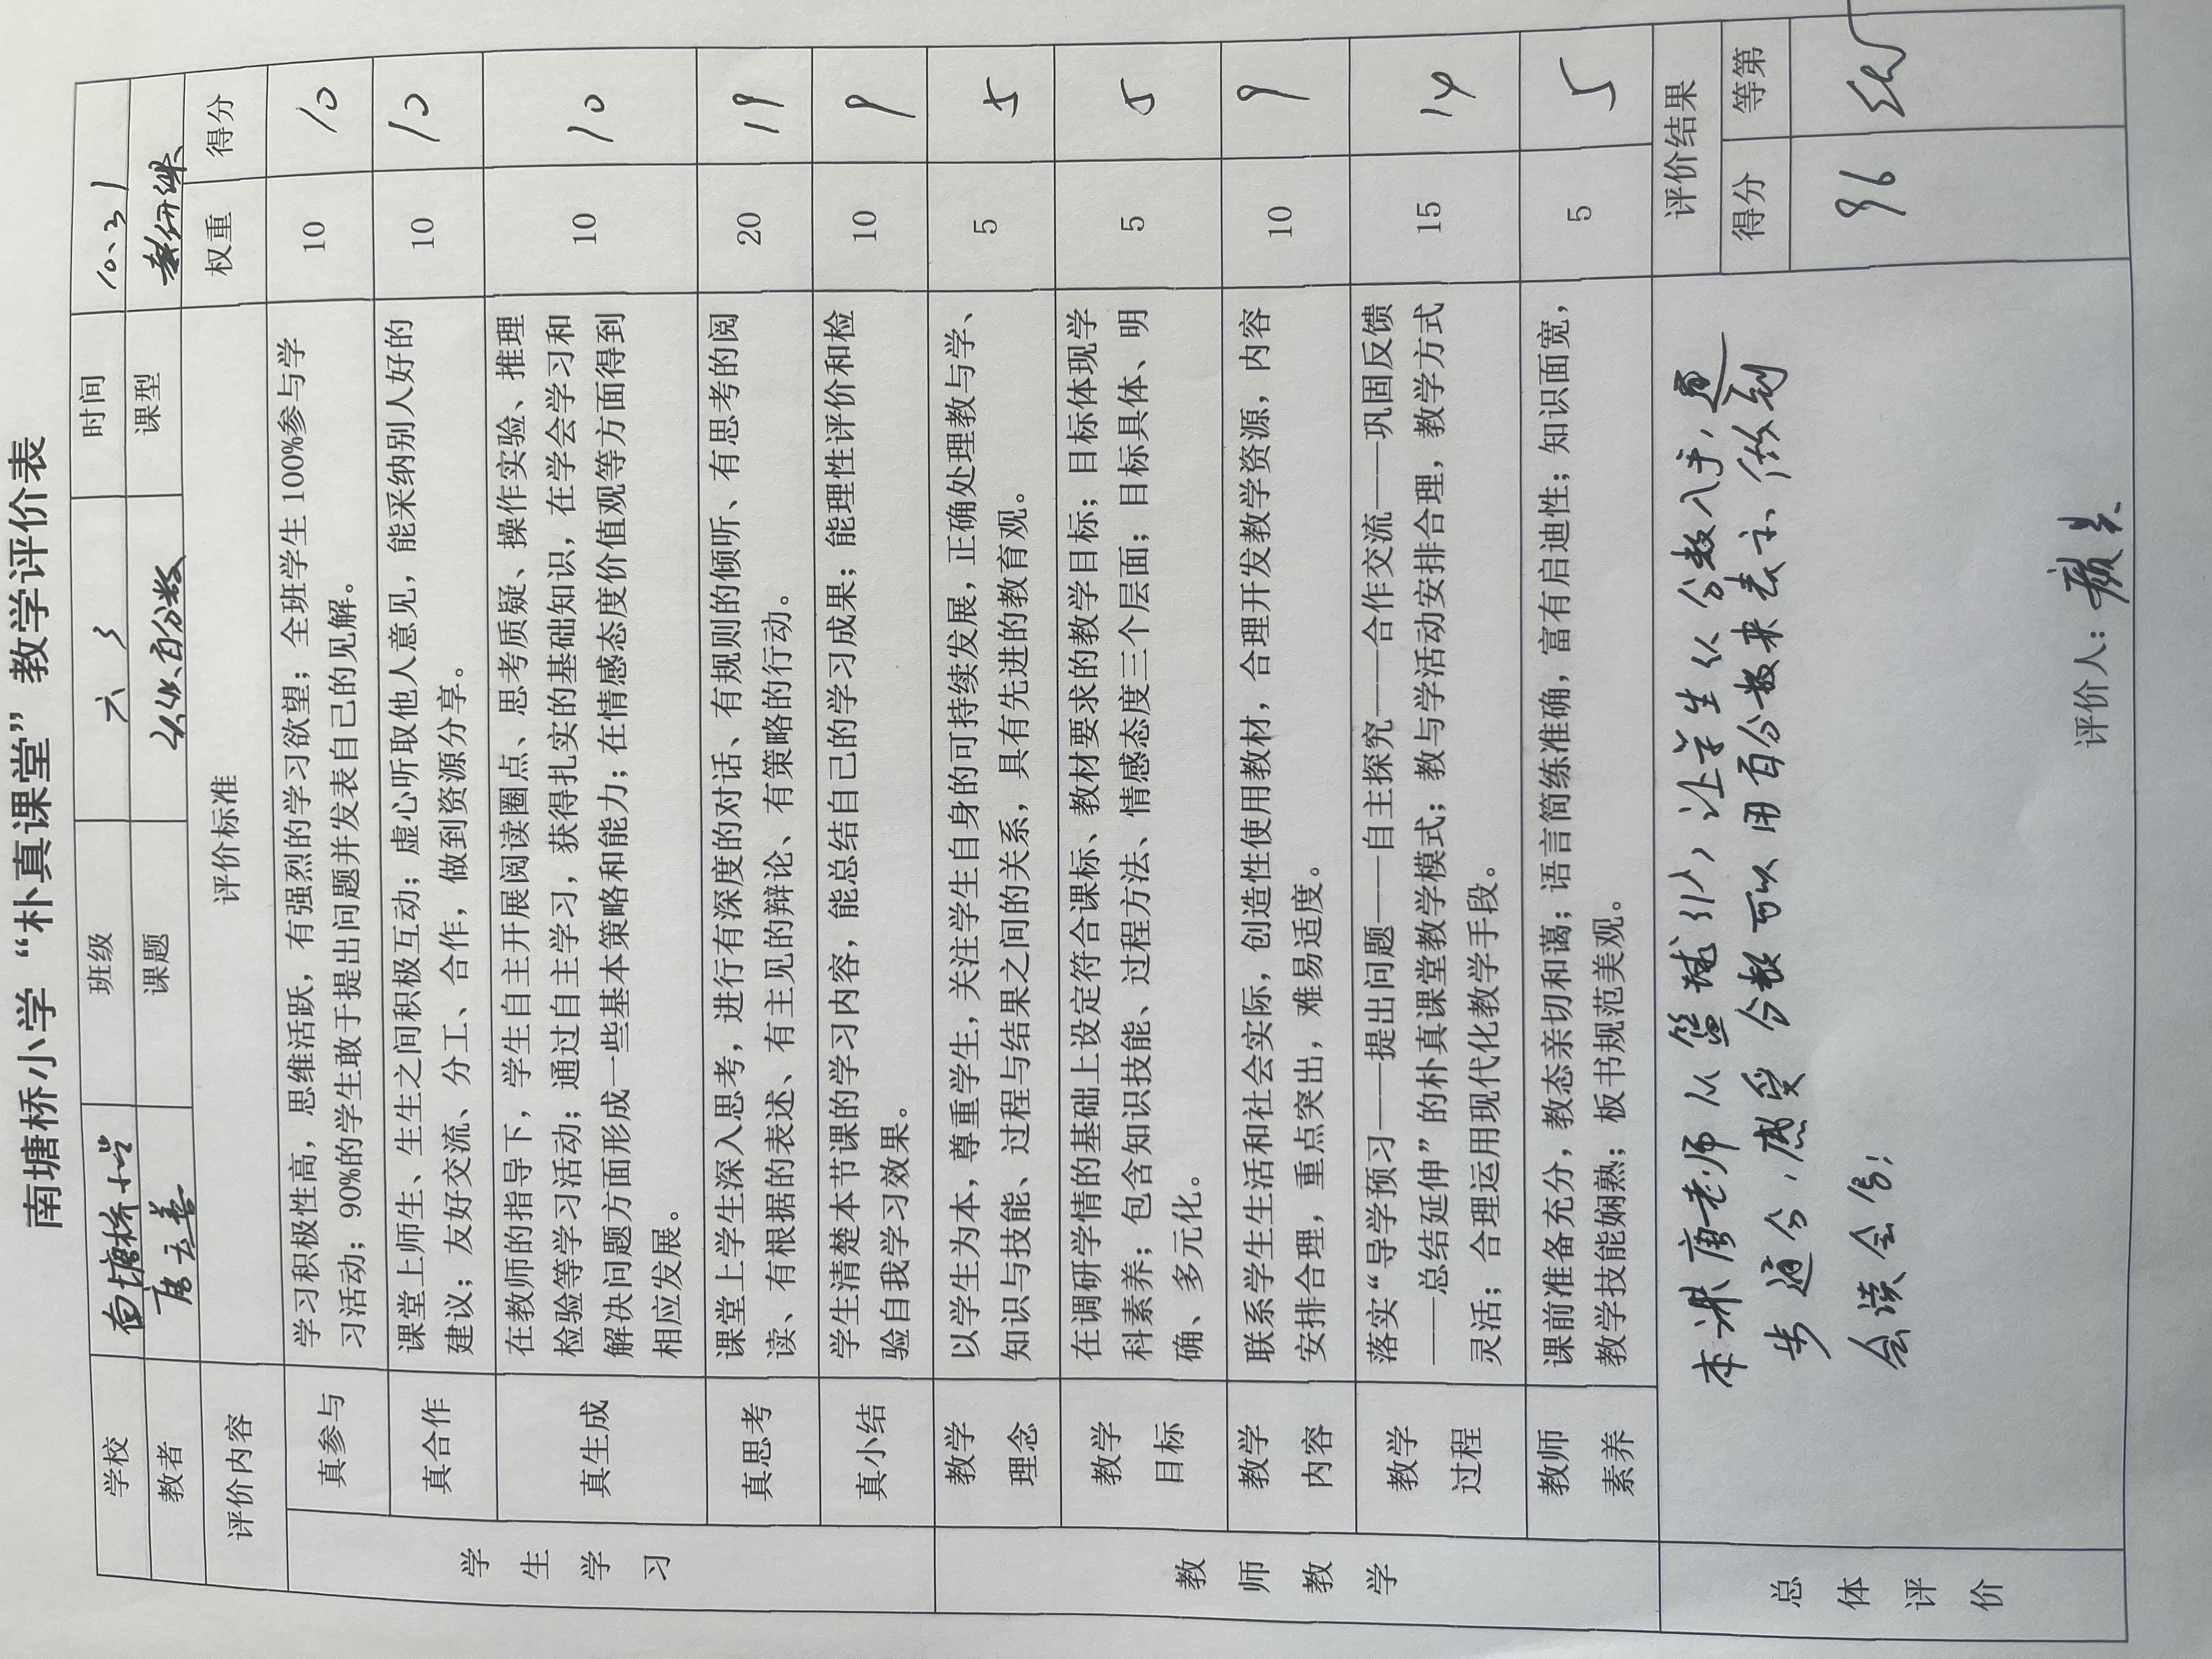 南塘桥小学“朴真课堂”教学评价表
学校 南塘桥小学 班级 六 时间 10、21
教者 唐 善 课题 认识百分数 课型 教研课
评价内容 评价标准 权重 得分
学生学习
真参与 学习积极性高，思维活跃，有强烈的学习欲望；全班学生100%参与学 10 10
习活动；90%的学生敢于提出问题并发表自己的见解。
真合作 课堂上师生、生生之间积极互动；虚心听取他人意见，能采纳别人好的 10 10
建议；友好交流、分工、合作，做到资源分享。
真生成 在教师的指导下，学生自主开展阅读圈点、思考质疑、操作实验、推理 10 10
检验等学习活动；通过自主学习，获得扎实的基础知识，在学会学习和
解决问题方面形成一些基本策略和能力；在情感态度价值观等方面得到
相应发展。
真思考 课堂上学生深入思考，进行有深度的对话、有规则的倾听、有思考的阅 20 19
读、有根据的表述、有主见的辩论、有策略的行动。
真小结 学生清楚本节课的学习内容，能总结自己的学习成果；能理性评价和检 10 9
验自我学习效果。
教师教学
教学理念 以学生为本，尊重学生，关注学生自身的可持续发展，正确处理教与学、 5 5
知识与技能、过程与结果之间的关系，具有先进的教育观。
教学目标 在调研学情的基础上设定符合课标、教材要求的教学目标；目标体现学 5 5
科素养；包含知识技能、过程方法、情感态度三个层面；目标具体、明
确、多元化。
教学内容 联系学生生活和社会实际，创造性使用教材，合理开发教学资源，内容 10 9
安排合理，重点突出，难易适度。
教学过程 落实“导学预习——提出问题——自主探究——合作交流——巩固反馈 15 14
——总结延伸”的朴真课堂教学模式；教与学活动安排合理，教学方式
灵活；合理运用现代化教学手段。
教师素养 课前准备充分，教态亲切和蔼；语言简练准确，富有启迪性；知识面宽， 5 5
教学技能娴熟；板书规范美观。
总体评价
本课唐老师从篮球引入，让学生从分数入手，逐
步通分，感受分数可以用百分数来表示，做到
会读会写！
评价人：
评价结果
得分 等第
96